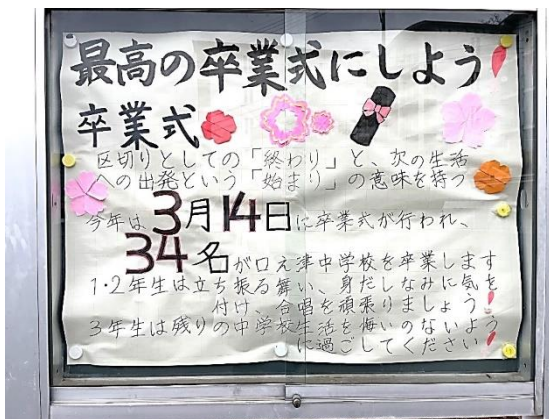 最高の卒業式にしよう!
卒業式
区切りとしての「終わり」と、次の生活
への出発という「始まり」の意味を持つ
今年は3月14日に卒業式が行われ、
34名が口之津中学校を卒業します
1・2年生は立ち振る舞い、身だしなみに気を
付け、合唱を頑張りましょう!
3年生は残りの中学校生活を悔いのないよう
に過ごしてください!